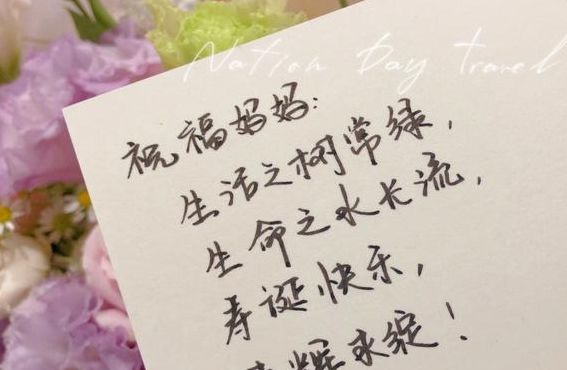 Nation Day travel
祝福妈妈:
生活之树常绿,
生命之水长流,
寿诞快乐,
春辉永绽!